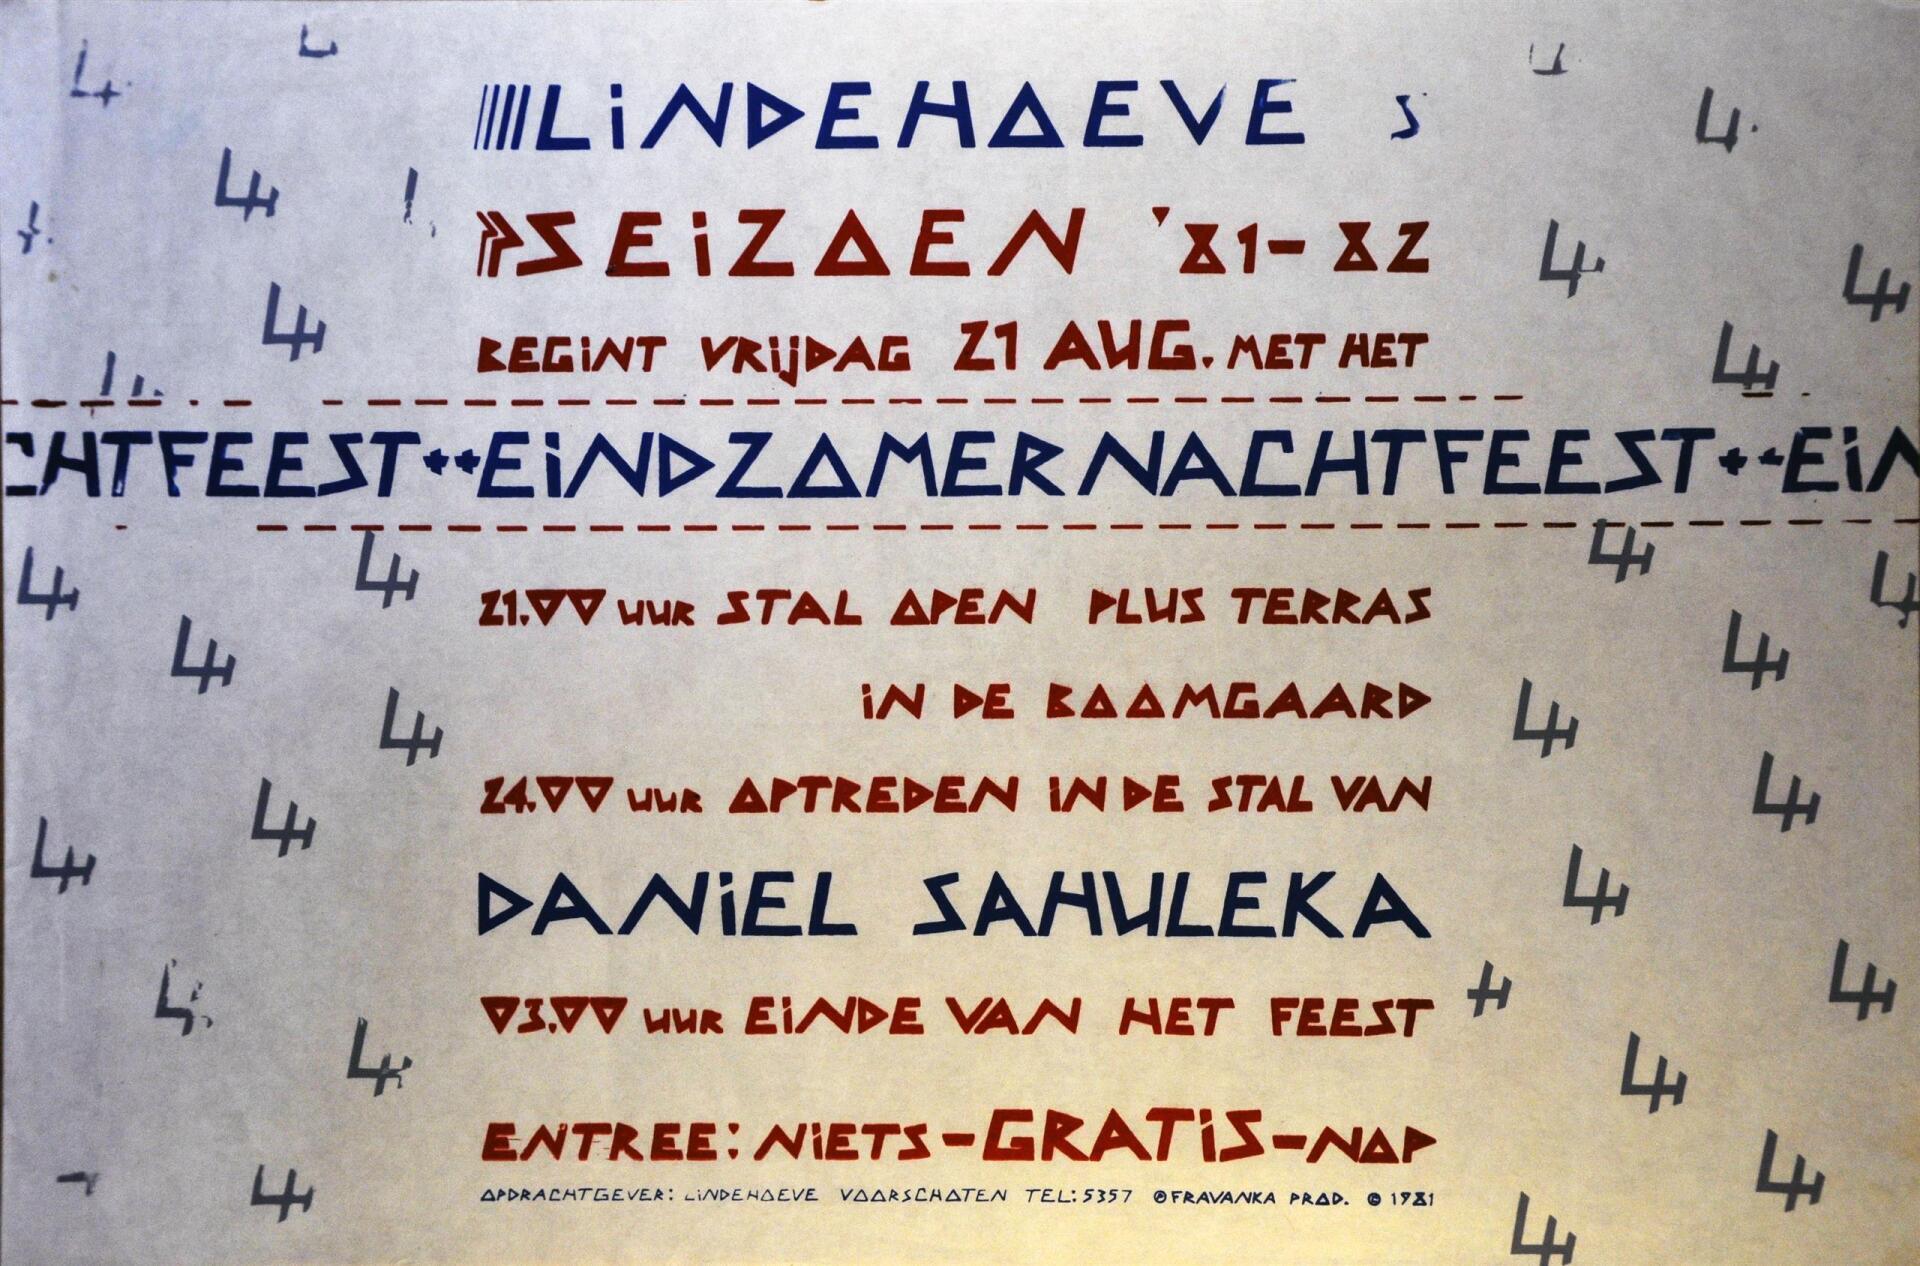 LINDEHOEVE S
SEIZOEN '81-82
BEGINT VRIJDAG 21 AUG. MET HET
CHTFEEST++EINDZOMERNACHTFEEST++EIN
21.00 UUR STAL OPEN PLUS TERRAS
IN DE BOOMGAARD
24.00 UUR OPTREDEN IN DE STAL VAN
DANIEL SAHULEKA
03.00 UUR EINDE VAN HET FEEST
ENTREE: NIETS-GRATIS-NOP
OPDRACHTGEVER: LINDEHOEVE VOORSCHOTEN TEL: 5357 ©FRAVANKA PROD. © 1981